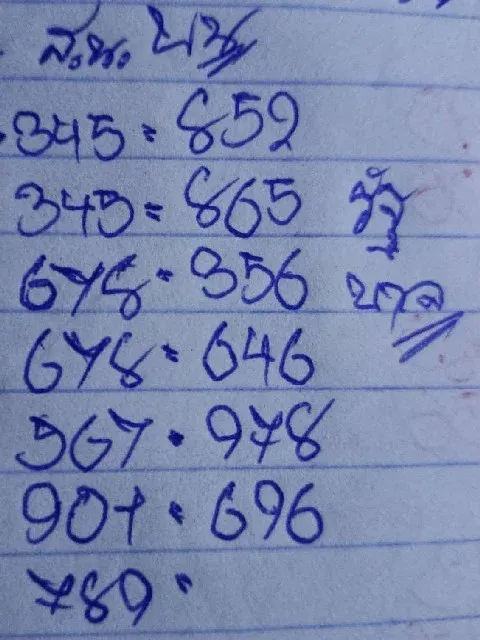 ส.น. บน
345 = 852
345 = 865 รัฐ
678 = 356 บาล
678 = 646
567 = 978
901 = 696
789 =